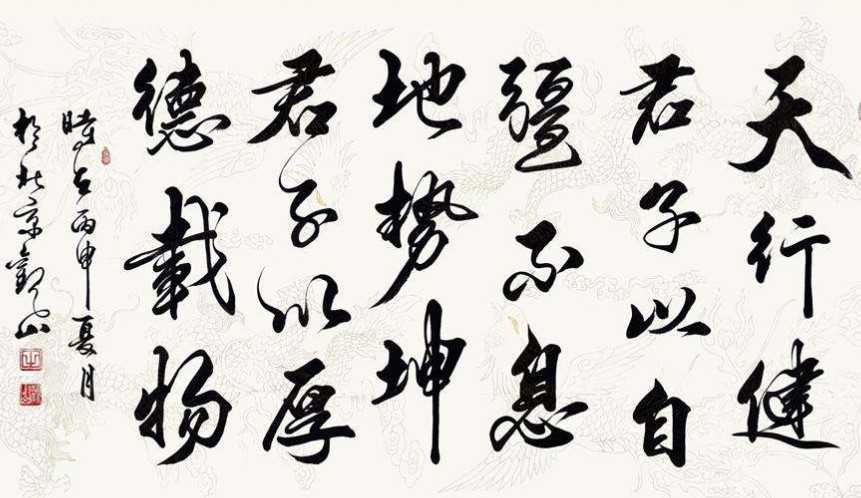 天行健
君子以自
彊不息
地势坤
君子以厚
德載物
時在丙申夏月
於北京